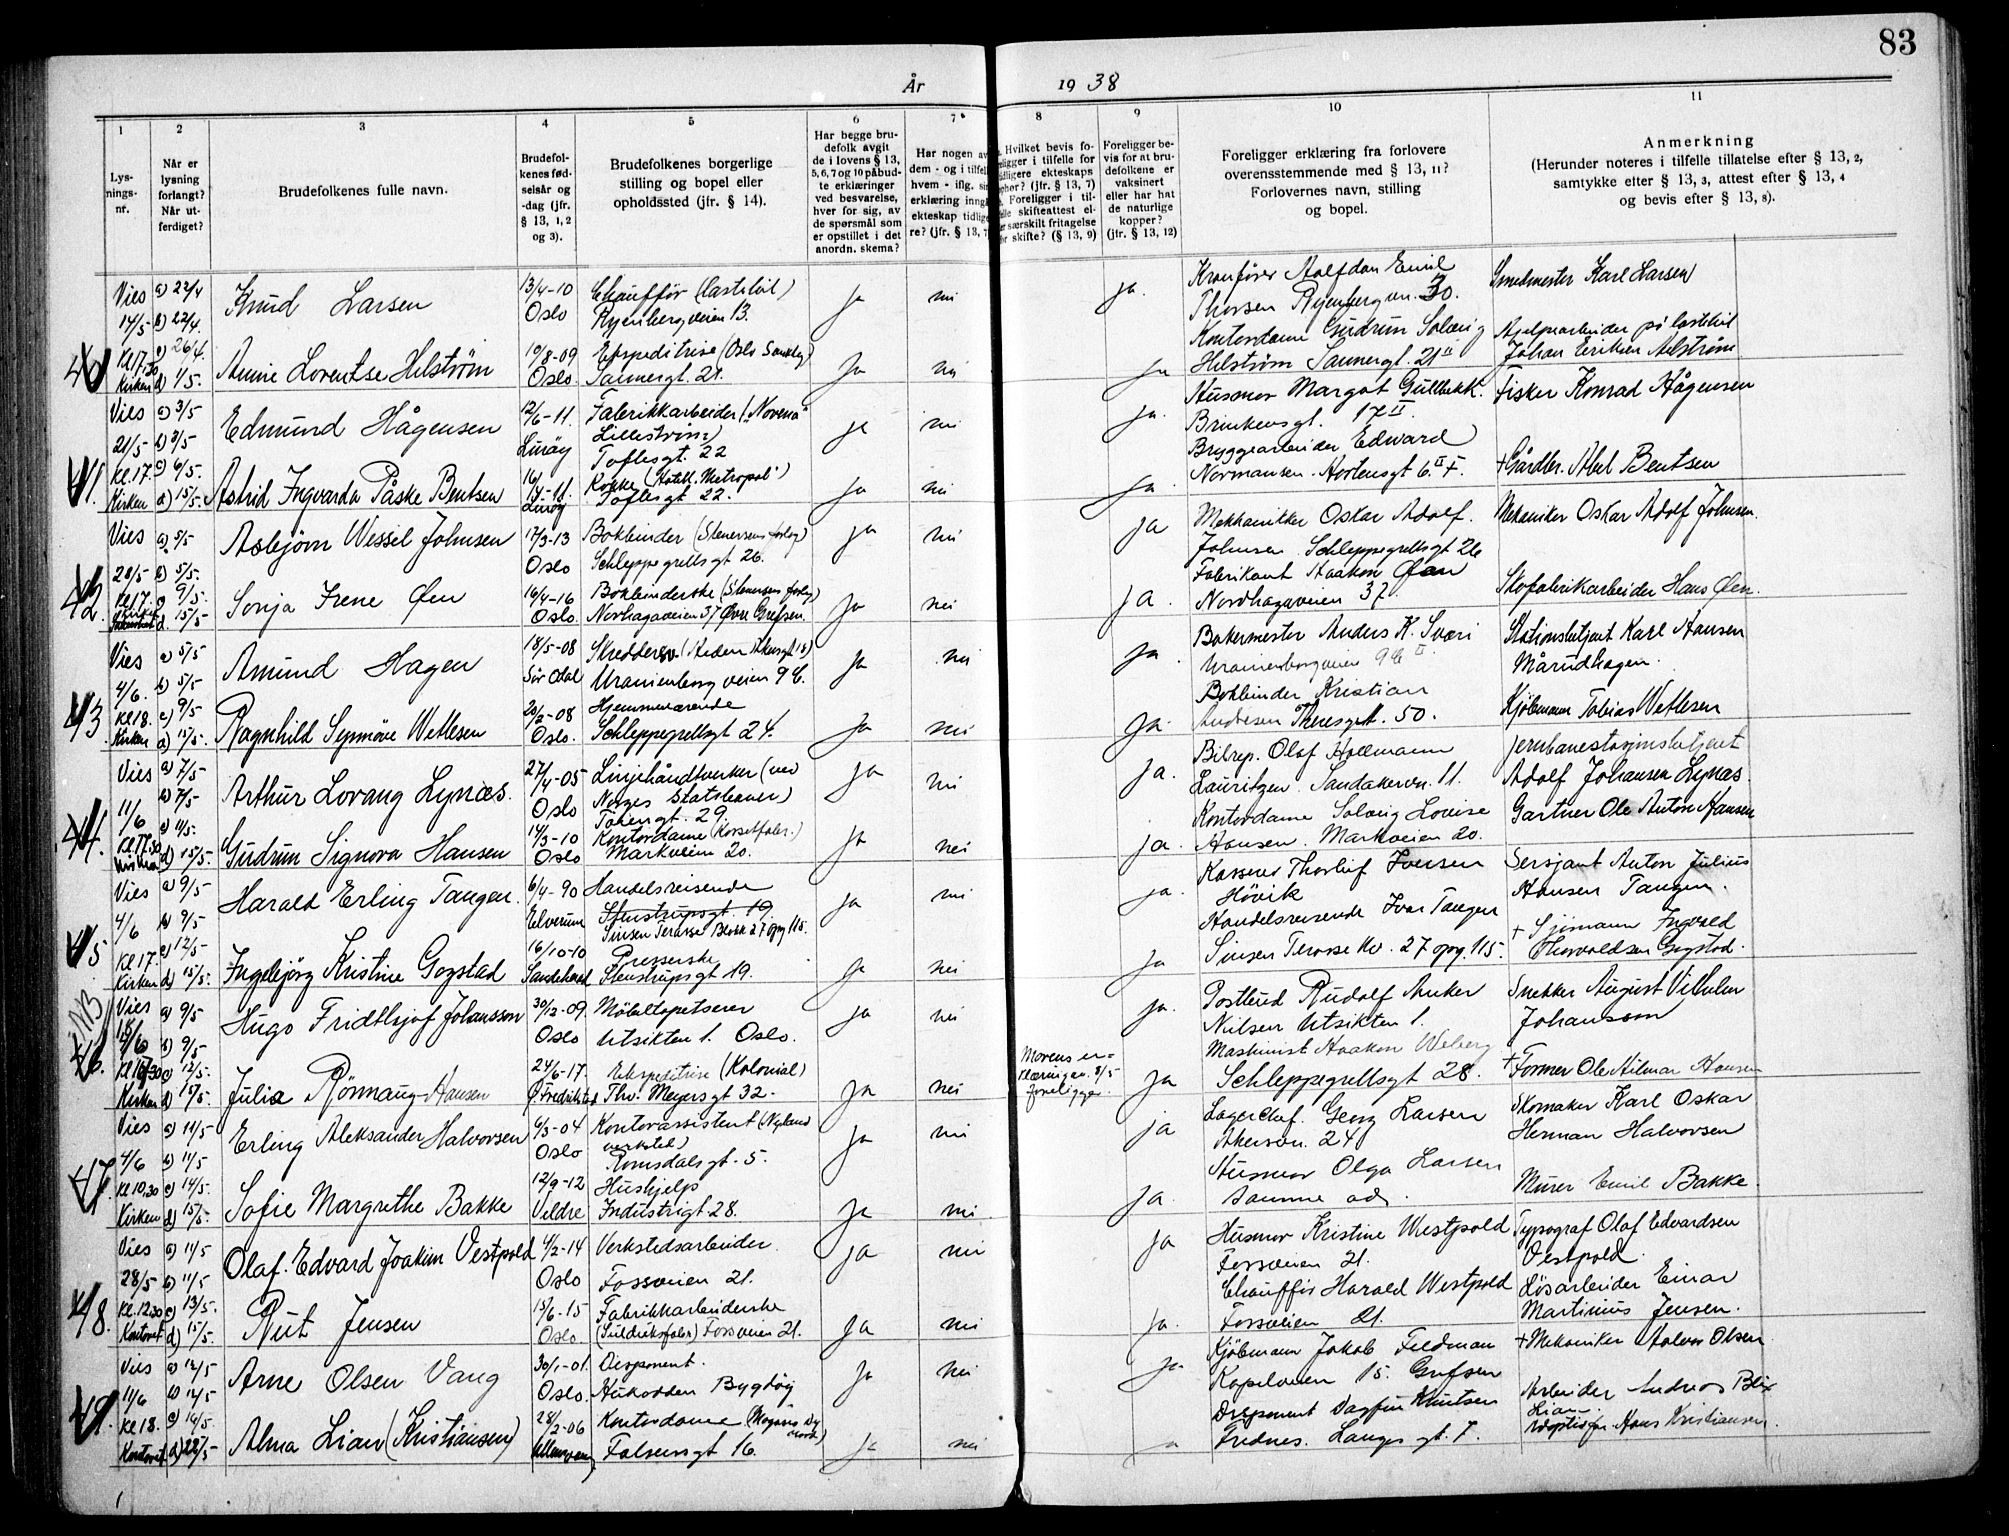 83
År 1938
1 2 3 4 5 6 7 8 9 10 11
Lys-
nings-
nr.
Når er
lysning
forlangt?
Når ut-
ferdiget?
Brudefolkenes fulle navn.
Brudefol-
kenes fød-
selsår og
-dag (jfr.
§ 13, 1, 2
og 3).
Brudefolkenes borgerlige
stilling og bopel eller
opholdssted (jfr. § 14).
Har begge bru-
defolk avgit
de i lovens § 13,
5, 6, 7 og 10 påbud-
te erklæringer
ved besvarelse,
hver for sig, av
de spørsmål som
er opstillet i det
anordn. skema?
Har nogen av
dem - og i tilfelle
hvem - iflg. sin
erklæring inngå
ekteskap tidlige
re? (jfr. § 13, 7
Hvilket bevis fo-
religger i tilfelle for
tidligere ekteskaps
ophør? (jfr. § 13, 7)
Foreligger i til-
felle skifteattest el-
ler særskilt fritagelse
for skifte? (§ 13, 9)
Foreligger be-
vis for at bru-
defolkene er
vaksinert
eller har hat
de naturlige
kopper?
(jfr. § 13, 12)
Foreligger erklæring fra forlovere
overensstemmende med § 13, 11?
Forlovernes navn, stilling
og bopel.
Anmerkning
(Herunder noteres i tilfelle tillatelse efter § 13, 2,
samtykke efter § 13, 3, attest efter § 13, 4
og bevis efter § 13, 8).
40
Vies 14/5 Kl 17.30 Kirken
a) 22/4 b) 22/4 c) 26/4 d) 1/5
Knud Larsen
13/4-10 Oslo
Chauffør (Lastebil)
Ryenbergveien 13.
ja nei ja
Kranfører Halfdan Emil
Thorsen Ryenbergvn. 30.
Smedmester Karl Larsen
Annie Lorentse Helstrøm
10/8-09 Oslo
Ekspeditrise (Oslo
Sannergt. 21.
ja nei ja
Kontordame Gudrun Solveig
Helstrøm Sannergt. 21 II
Hjelpearbeider på lastebil
Johan Eriksen Helstrøm
41.
Vies 21/5 Kl. 17. Kirken
a) 3/5 b) 3/5 c) 6/5 d) 15/5
Edmund Hågensen
12/6-11. Lurøy
Fabrikkarbeider ("Norema"
Lillestrøm)
Toftesgt. 22
ja nei ja
Husmor Margot Gullbekk
Brinkensgt. 17 II
Fisker Konrad Hågensen
Astrid Ingvarda Påske Bentsen
Lurøy
Kokke (Hotell "Metropol")
Toftesgt 22.
ja nei ja
Bryggearbeider Edward
Normansen Hortensgt 6. II
+ Gårdbr. Abel Bentsen
42.
Vies 28/5 Kl 17
a) 5/5 b) 5/5 c) 9/5 d. 15/5
Asbjørn Wessel Johnsen
17/3-13 Oslo
Bokbinder (Stenersens forlag)
Schleppegrellsgt 26.
ja nei ja
Mekhanikker Oskar Adolf
Johnsen Schleppegrellsgt 26
Mekaniker Oskar Adolf Johnsen.
Sonja Irene Øen
16/4-16 Oslo.
Bokbinderske (Stenersens forlag)
Norhagaveien 37 Øvre Grefsen
ja nei ja.
Fabrikant Haakon Øen
Nordhagaveien 37
Skofabrikarbeider Hans Øen.
43
Vies 4/6. Kl 18. Kirken
a) 5/5 b) 5/5 c) 9/5 d) 15/5.
Amund Hagen
18/5-08 Sør Odal
Uranienborgveien 9 b.
ja nei ja.
Bakermester Anders K. Sveri
Uranienborgveien 9 b II
Stasjonsbetjent Karl Hansen
Mårudhagen.
Ragnhild Synnøve Wetlesen
20/2-08 Oslo.
Hjemmeværende
Schleppegrellsgt 24.
ja nei ja.
Bokbinder Kristian
Andresen Theresesgt. 50.
Kjøbmann Tobias Wetlesen
44.
Vies 11/6 Kl 17.30
a) 7/5 b) 7/5 c) 11/5. d) 15/5.
Arthur Lovang Lynæs.
27/4-05 Oslo
Linjehåndtverker (ved
Norges Statsbaner)
Tøyengt. 29.
ja nei ja.
Bilrep. Olaf Hallmann
Lauritzen. Sandakervn. 11.
Jernbanestasjonsbetjent
Adolf Johansen Lynæs.
Gudrun Signora Hansen
14/3-10 Oslo
Kontordame (Korsettfabr.)
Markveien 20.
ja nei ja.
Kontordame Solveig Lovise
Hansen. Markveien 20.
Gartner Ole Anton Hansen
45
Vies 4/6 Kl 17. Kirken
a) 9/5 b) 9/5 c) 12/5 d) 15/5.
Harald Erling Tangen.
6/4-90 Elverum
Handelsreisende
Stenstrupsgt. 19.
Sinsen Terasse Blokk 27 opg 115.
ja nei ja.
Kasserer Thorleif Iversen
Høvik
Sersjant Anton Julius
Hansen Tangen.
Ingebjørg Kristine Gogstad
16/10-10 Sandeherad
Presserske
Stenstrupsgt 19.
ja nei ja
Handelsreisende Ivar Tangen
Sinsen Terasse 27 opg. 115.
+ Sjømann Ingvald
Thorvaldsen Gogstad.
NB
46.
Vies Kirken
a) 9/5 b) 9/5 c) 12/5 d) 15/5.
Hugo Fridthjof Johansson
30/12-09 Oslo
Møbeltapetserer
Utsikten 1. Oslo.
ja nei ja.
Postbud Rudolf Anker
Nilsen Utsikten 1.
Snekker August Vilhelm
Johansson
Julia Rønnaug Hansen
24/6-17. Ø Fredrikstad
Ekspeditrise (Kolonial)
Thv. Meyersgt 32.
ja nei
Morens er-
klæring av 8/5
foreligger.
ja
Maskinist Haakon Weberg
Schleppegrellsgt 28.
+ Former Ole Hilmar Hansen
47.
Vies 4/6 Kl 10.30 Kirken
a) 11/5 b) 11/5 c) 14/5. d) 15/5.
Erling Aleksander Halvorsen
6/3-04 Oslo
Kontorassistent (Nyland
verksted)
Romsdalsgt. 5.
ja nei ja
Lagerchef. Georg Larsen
Akersvn. 24
Skomaker Karl Oskar
Herman Halvorsen
Sofie Margrethe Bakke
12/9-12 Veldre
Hushjelp
Industrigt 28.
ja nei ja.
Husmor Olga Larsen
samme adr.
Murer Emil Bakke.
48.
Vies 28/5 Kl. 12.30 Kontoret
a) 11/5 b) 11/5 c) 13/5. d) 15/5.
Olaf Edvard Joakim Vestpold
4/2-14 Oslo
Verkstedsarbeider
Fossveien 21.
ja nei ja
Husmor Kristine Westpold
Fossveien 21.
Typograf Olaf Edvardsen
Vestpold.
Rut Jensen
15/6-15 Oslo.
Fabrikkarbeiderske
Fossveien 21.
ja nei ja.
Chauffør Harald Westpold
Fossveien 21.
Løsarbeider Einar
Martinius Jensen.
49.
Vies 11/6 Kl 18. Kontoret
a) 12/5 b) 12/5 c) 16/5. d) 22/5
Arne Olsen Vang
30/1-01. Oslo.
Disponent.
Hukodden Bygdøy
ja nei ja.
Kjøbmann Jakob Feldman
Kapelveien 15. Grefsen
+ Mekaniker Halvor Olsen
Alma Lian (Kristiansen)
28/2-06
Kontordame
Falsensgt 16.
ja nei
Disponent Dagfin Knutsen
Langes gt. 7.
Arbeider Andreas Blix
Lian.
Adoptivfar Hans Kristiansen.